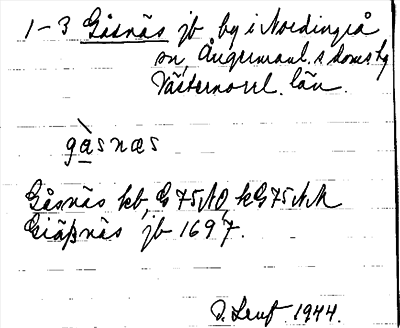 1-3 Gåsnäs jb by i Nordingrå
sn, Ångermanl. s domsbg
Västernorrl. län.
gàsnæs
Gåsnäs kb, G75NO, kG75NN
Giäßnäs jb 1697.
D. Lenf. 1944.